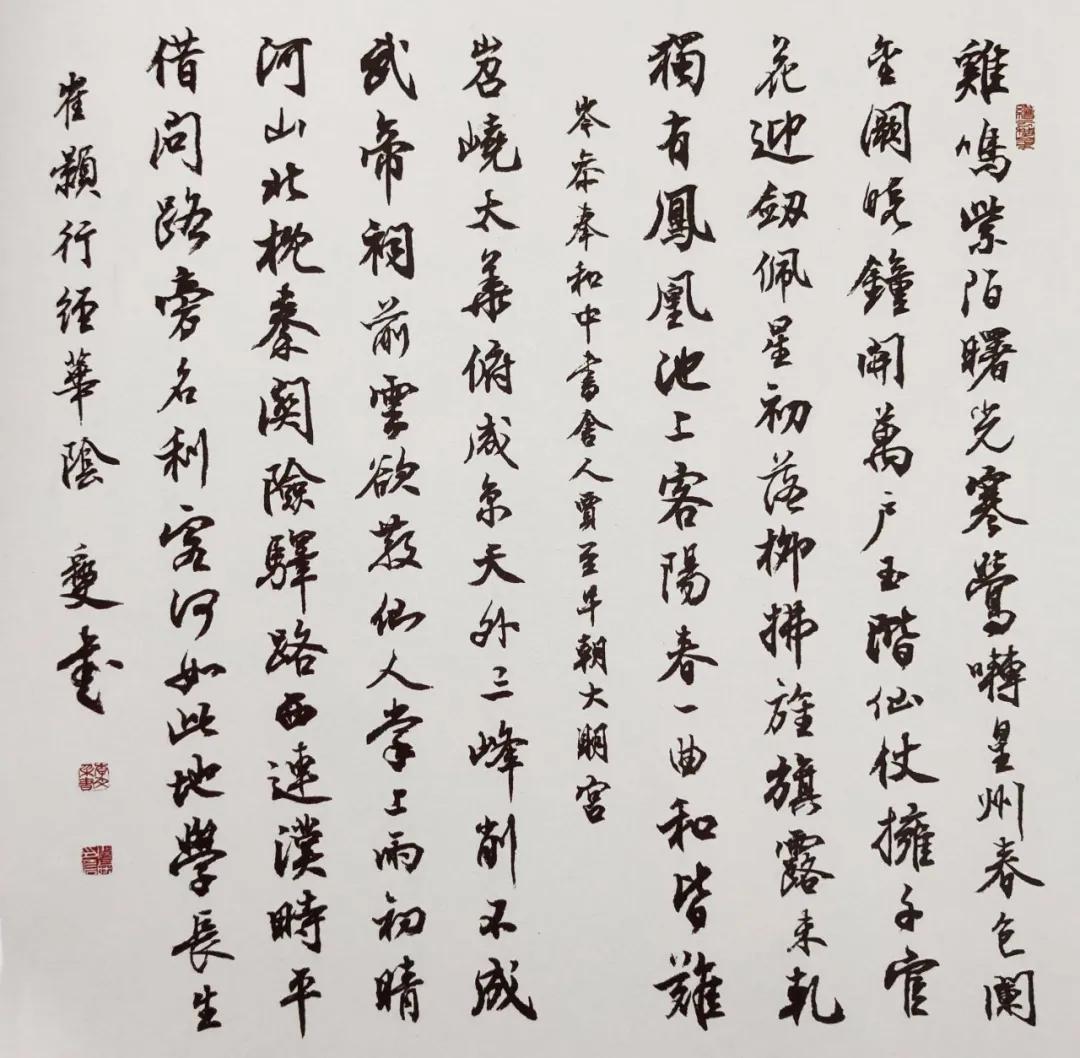 雞鳴紫陌曙光寒鶯囀皇州春色闌
金闕曉鐘開萬戶玉階仙仗擁千官
花迎劔佩星初落柳拂旌旗露未乾
獨有鳳凰池上客陽春一曲和皆難
岑參奉和中書舍人賈至早朝大明宮
岧嶢太華俯咸京天外三峰削不成
武帝祠前雲欲散仙人掌上雨初晴
河山北枕秦關險驛路西連漢畤平
借問路旁名利客何如此地學長生
崔顥行經華陰 書